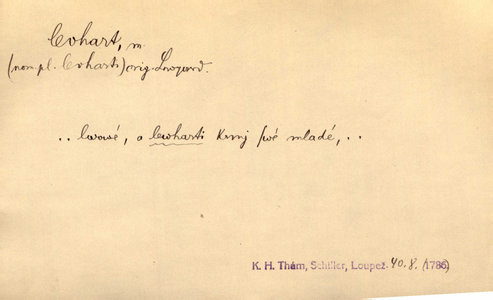 levhart, m.
(nom. pl. levharti) orig. Leopard.
.. lwowé, a lewharti krmj swé mladé, ..
K. H. Thám, Schiller, Loupež. 40. 8. (1786)